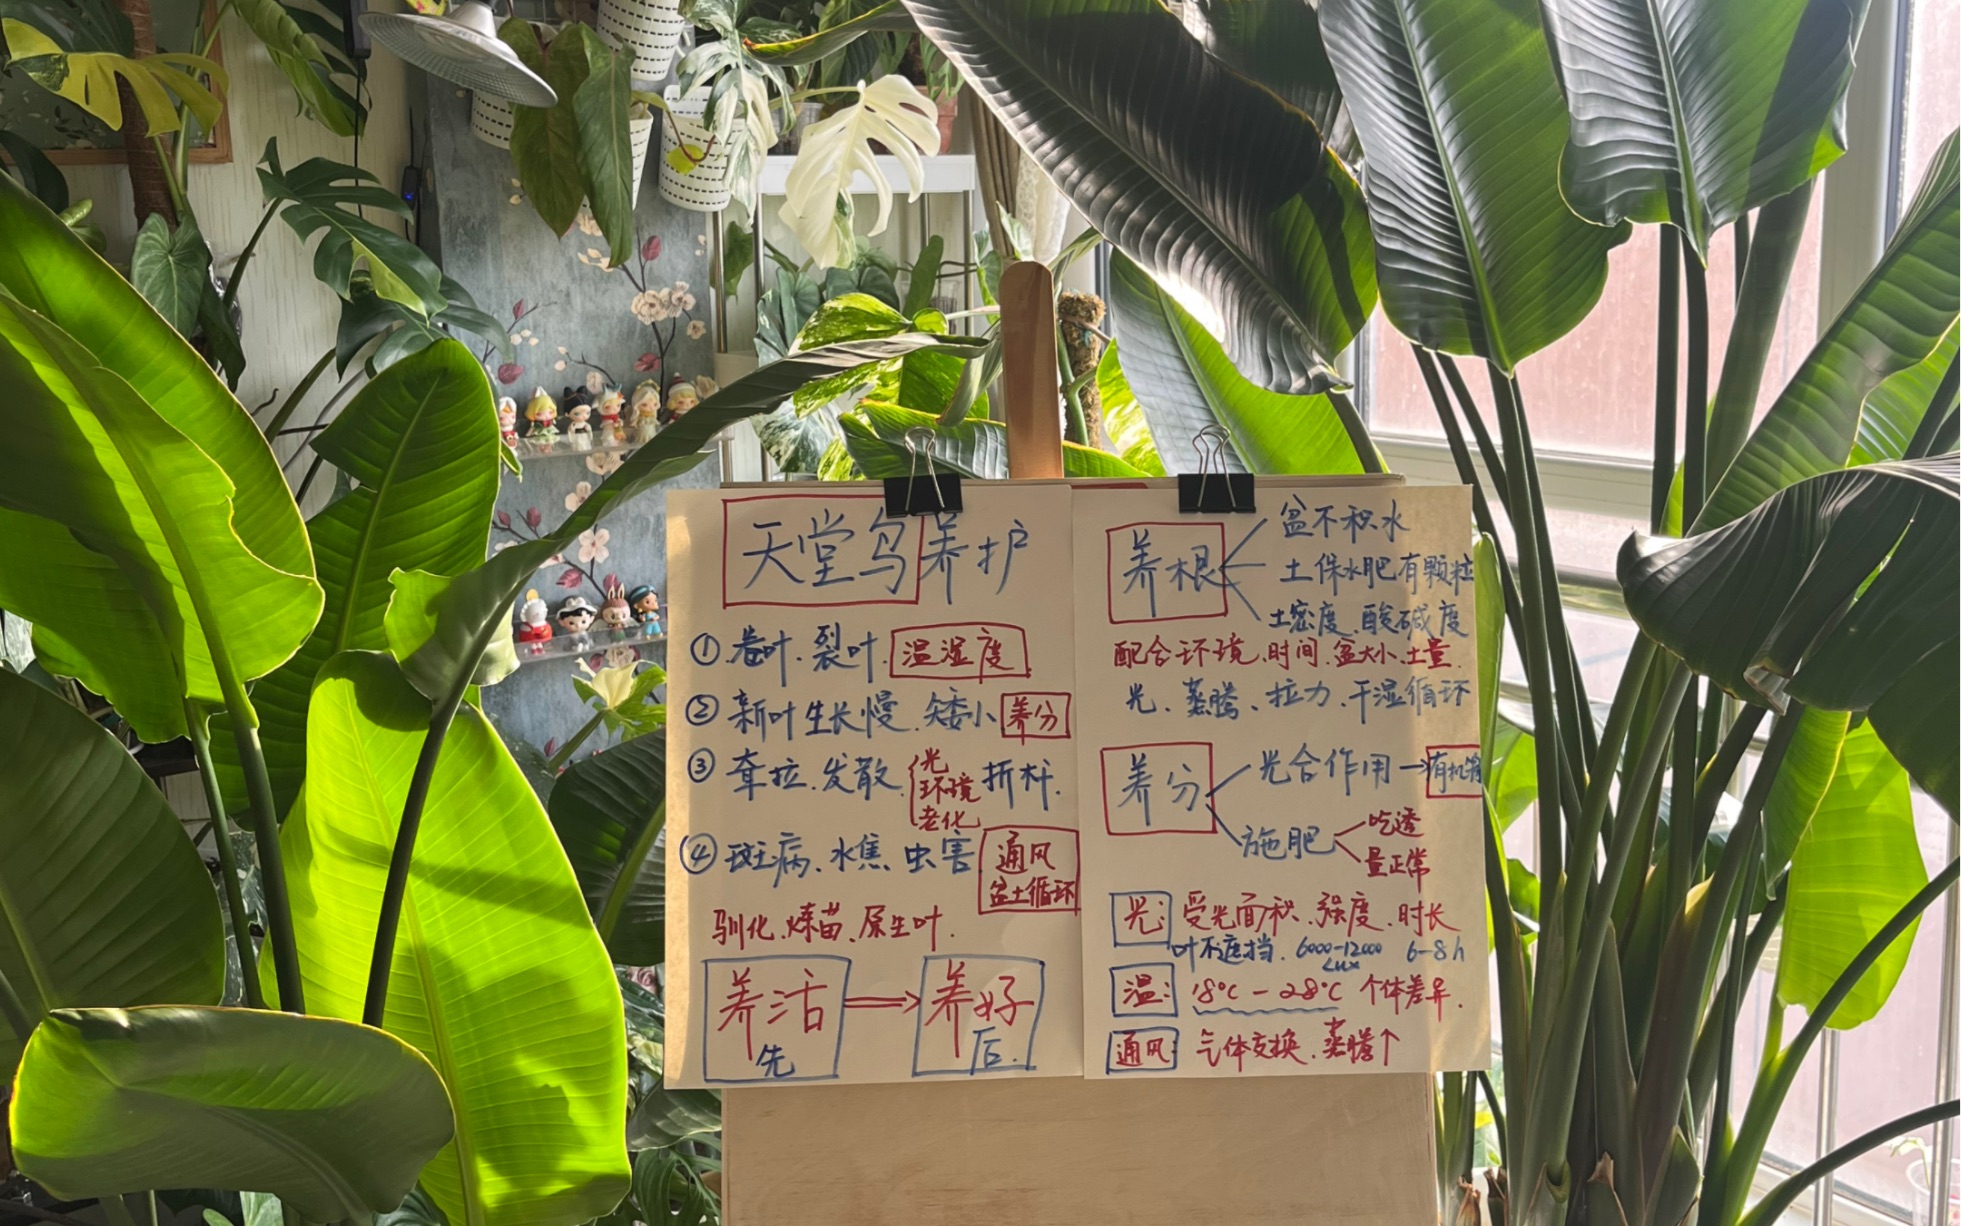 天堂鸟养护
①卷叶.裂叶.温湿度
②新叶生长慢.矮小养分
③牵拉.发散.光
环境
老化
折杆.
④斑病.水焦.虫害
通风
盆土循环
驯化.炼苗.原生叶.
养活
先
养好
后.
养根
盆不积水
土保水肥有颗粒
土密度.酸碱度
配合环境.时间.盆大小.土量.
光、蒸腾、拉力、干湿循环
养分
光合作用→有机物
施肥
吃透
量正常
光:受光面积.强度.时长
叶不遮挡.6000-12000
Lux
6-8h
温:18℃-28℃ 个体差异.
通风 气体交换.蒸腾↑